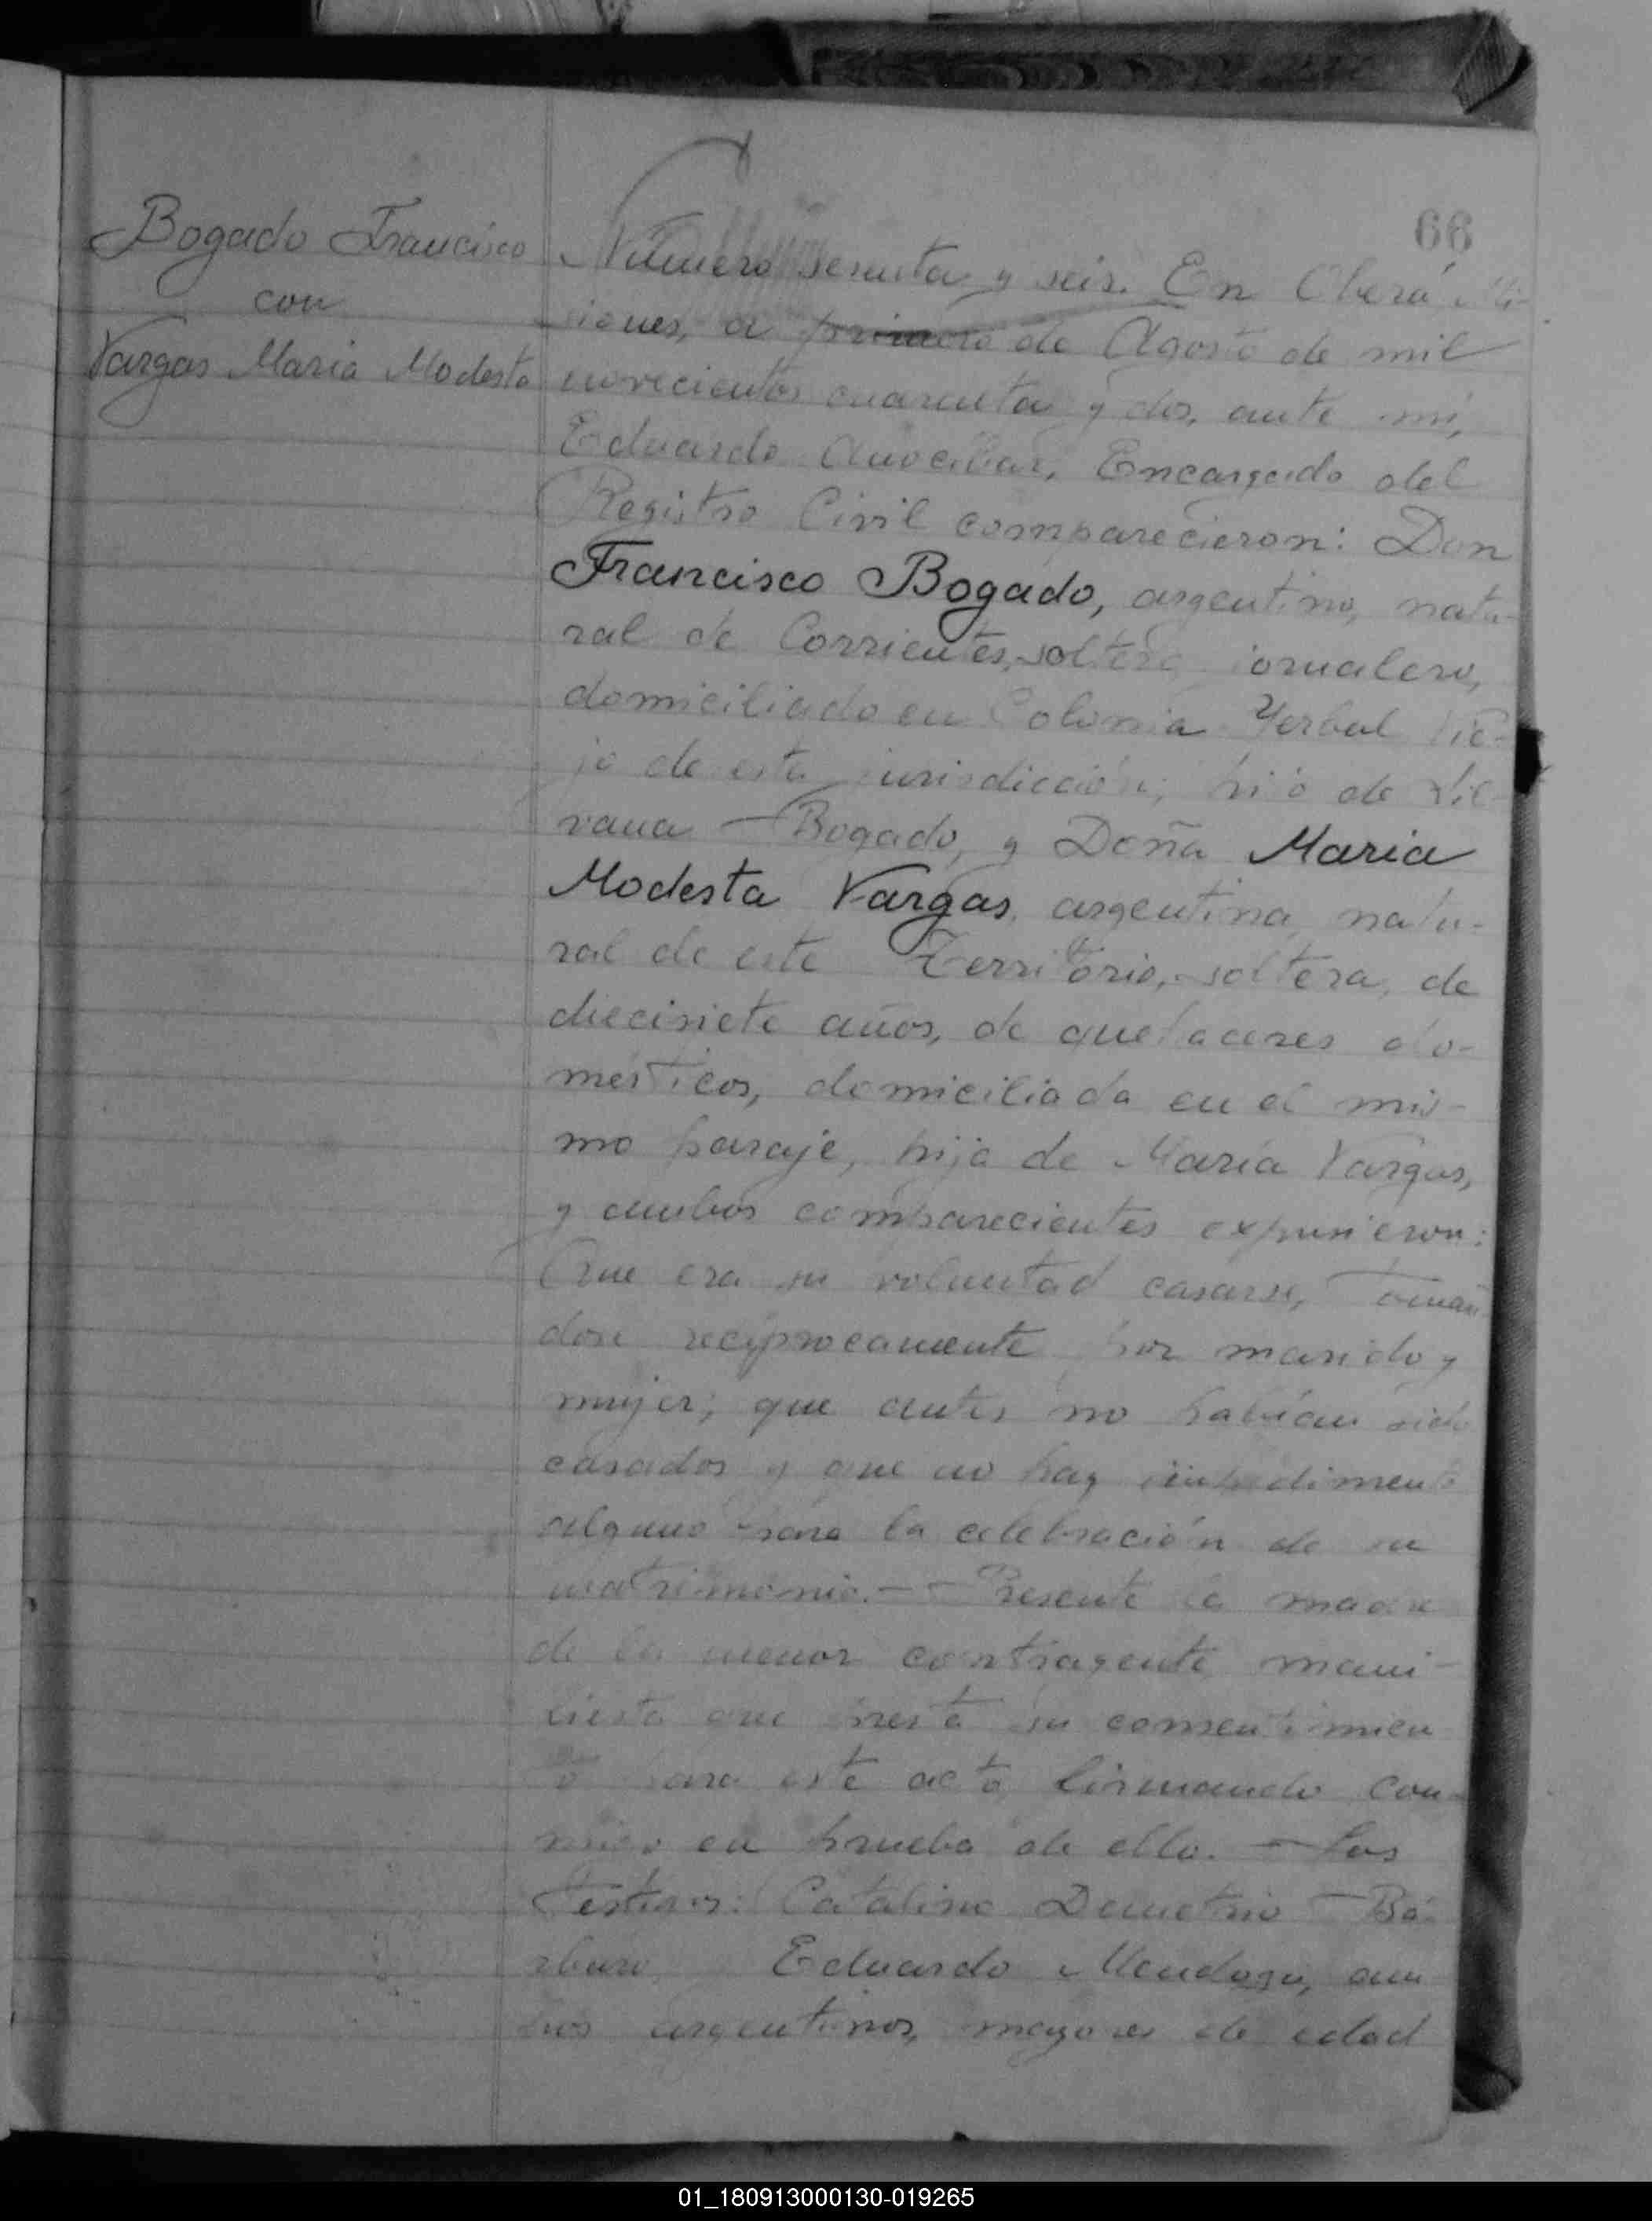 66
Bogado Francisco
con
Vargas Maria Modesta
Número sesenta y seis. En Oberá, Mi-
siones, a primero de Agosto de mil
novecientos cuarenta y dos, ante mí,
Eduardo Encargado del
Registro Civil comparecieron: Don
Francisco Bogado, argentino, natu-
ral de Corrientes, soltero, jornalero,
domiciliado en Colonia Yerbal Vie-
jo de esta jurisdicción, hijo de Sil-
vana Bogado, y Doña Maria
Modesta Vargas, argentina, natu-
ral de este Territorio, soltera, de
diecisiete años, de quehaceres do-
mésticos, domiciliada en el mis-
mo paraje, hija de María Vargas,
y ambos comparecientes expusieron:
Que era su voluntad casarse, toman
dose recíprocamente por marido y
mujer; que antes no habían sido
casados y que no hay impedimento
alguno para la celebración de su
matrimonio. — — Presente la madre
de la menor contrayente mani-
fiesta que presta su consentimien
to para este acto firmando con-
migo en prueba de ello. — Los
testigos: Catalino Demetrio Bá-
rbaro Eduardo Mendoza, am
bos argentinos, mayores de edad
01_180913000130-019265